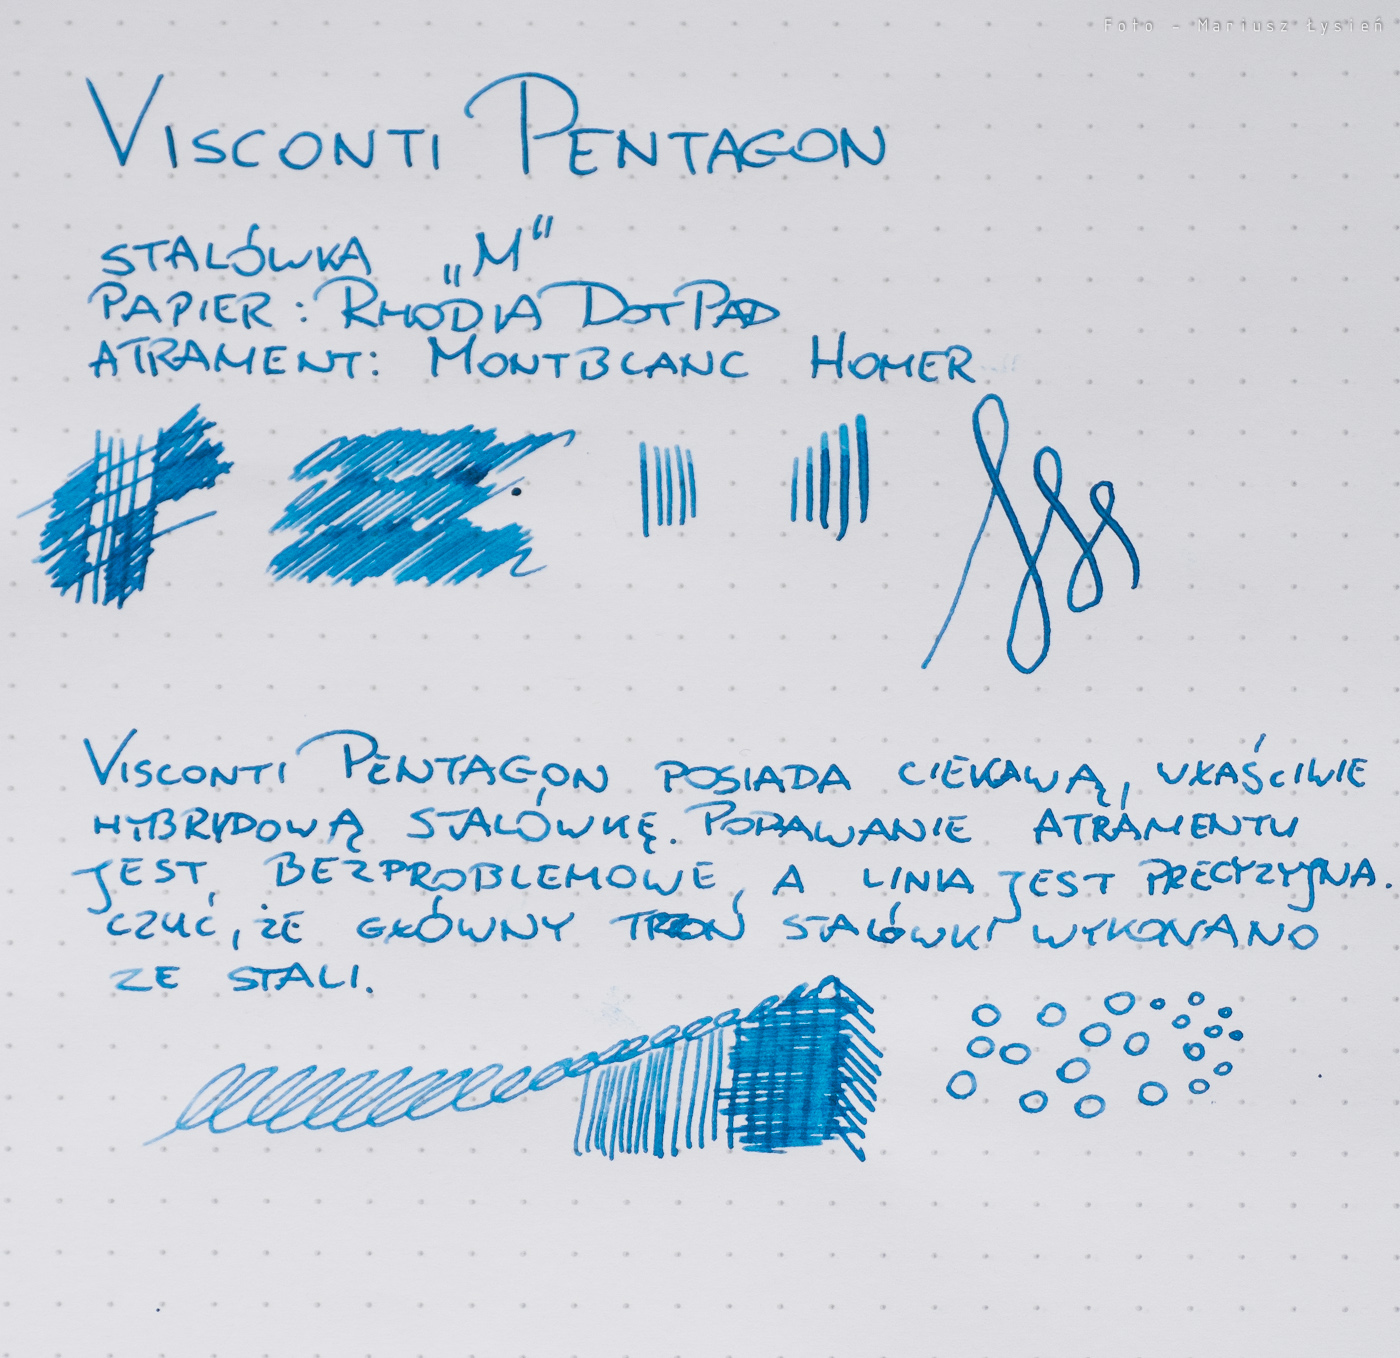 Foto - Mariusz Łysień
VISCONTI PENTAGON
STALÓWKA „M“
PAPIER : RHODIA DOTPAD
ATRAMENT: MONTBLANC HOMER
VISCONTI PENTAGON POSIADA CIEKAWĄ, WŁAŚCIWIE
HYBRYDOWĄ STALÓWKĘ. PODAWANIE ATRAMENTU
JEST BEZPROBLEMOWE, A LINIA JEST PRECYZYJNA.
CZUĆ, ŻE GŁÓWNY TROŃ STALÓWKI WYKONANO
ZE STALI.